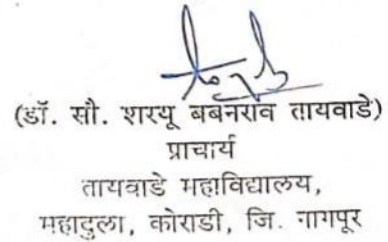 (डॉ. सौ. शरयू बबनराव तायवाडे)
प्राचार्य
तायवाडे महाविद्यालय,
महादुला, कोराडी, जि. नागपूर